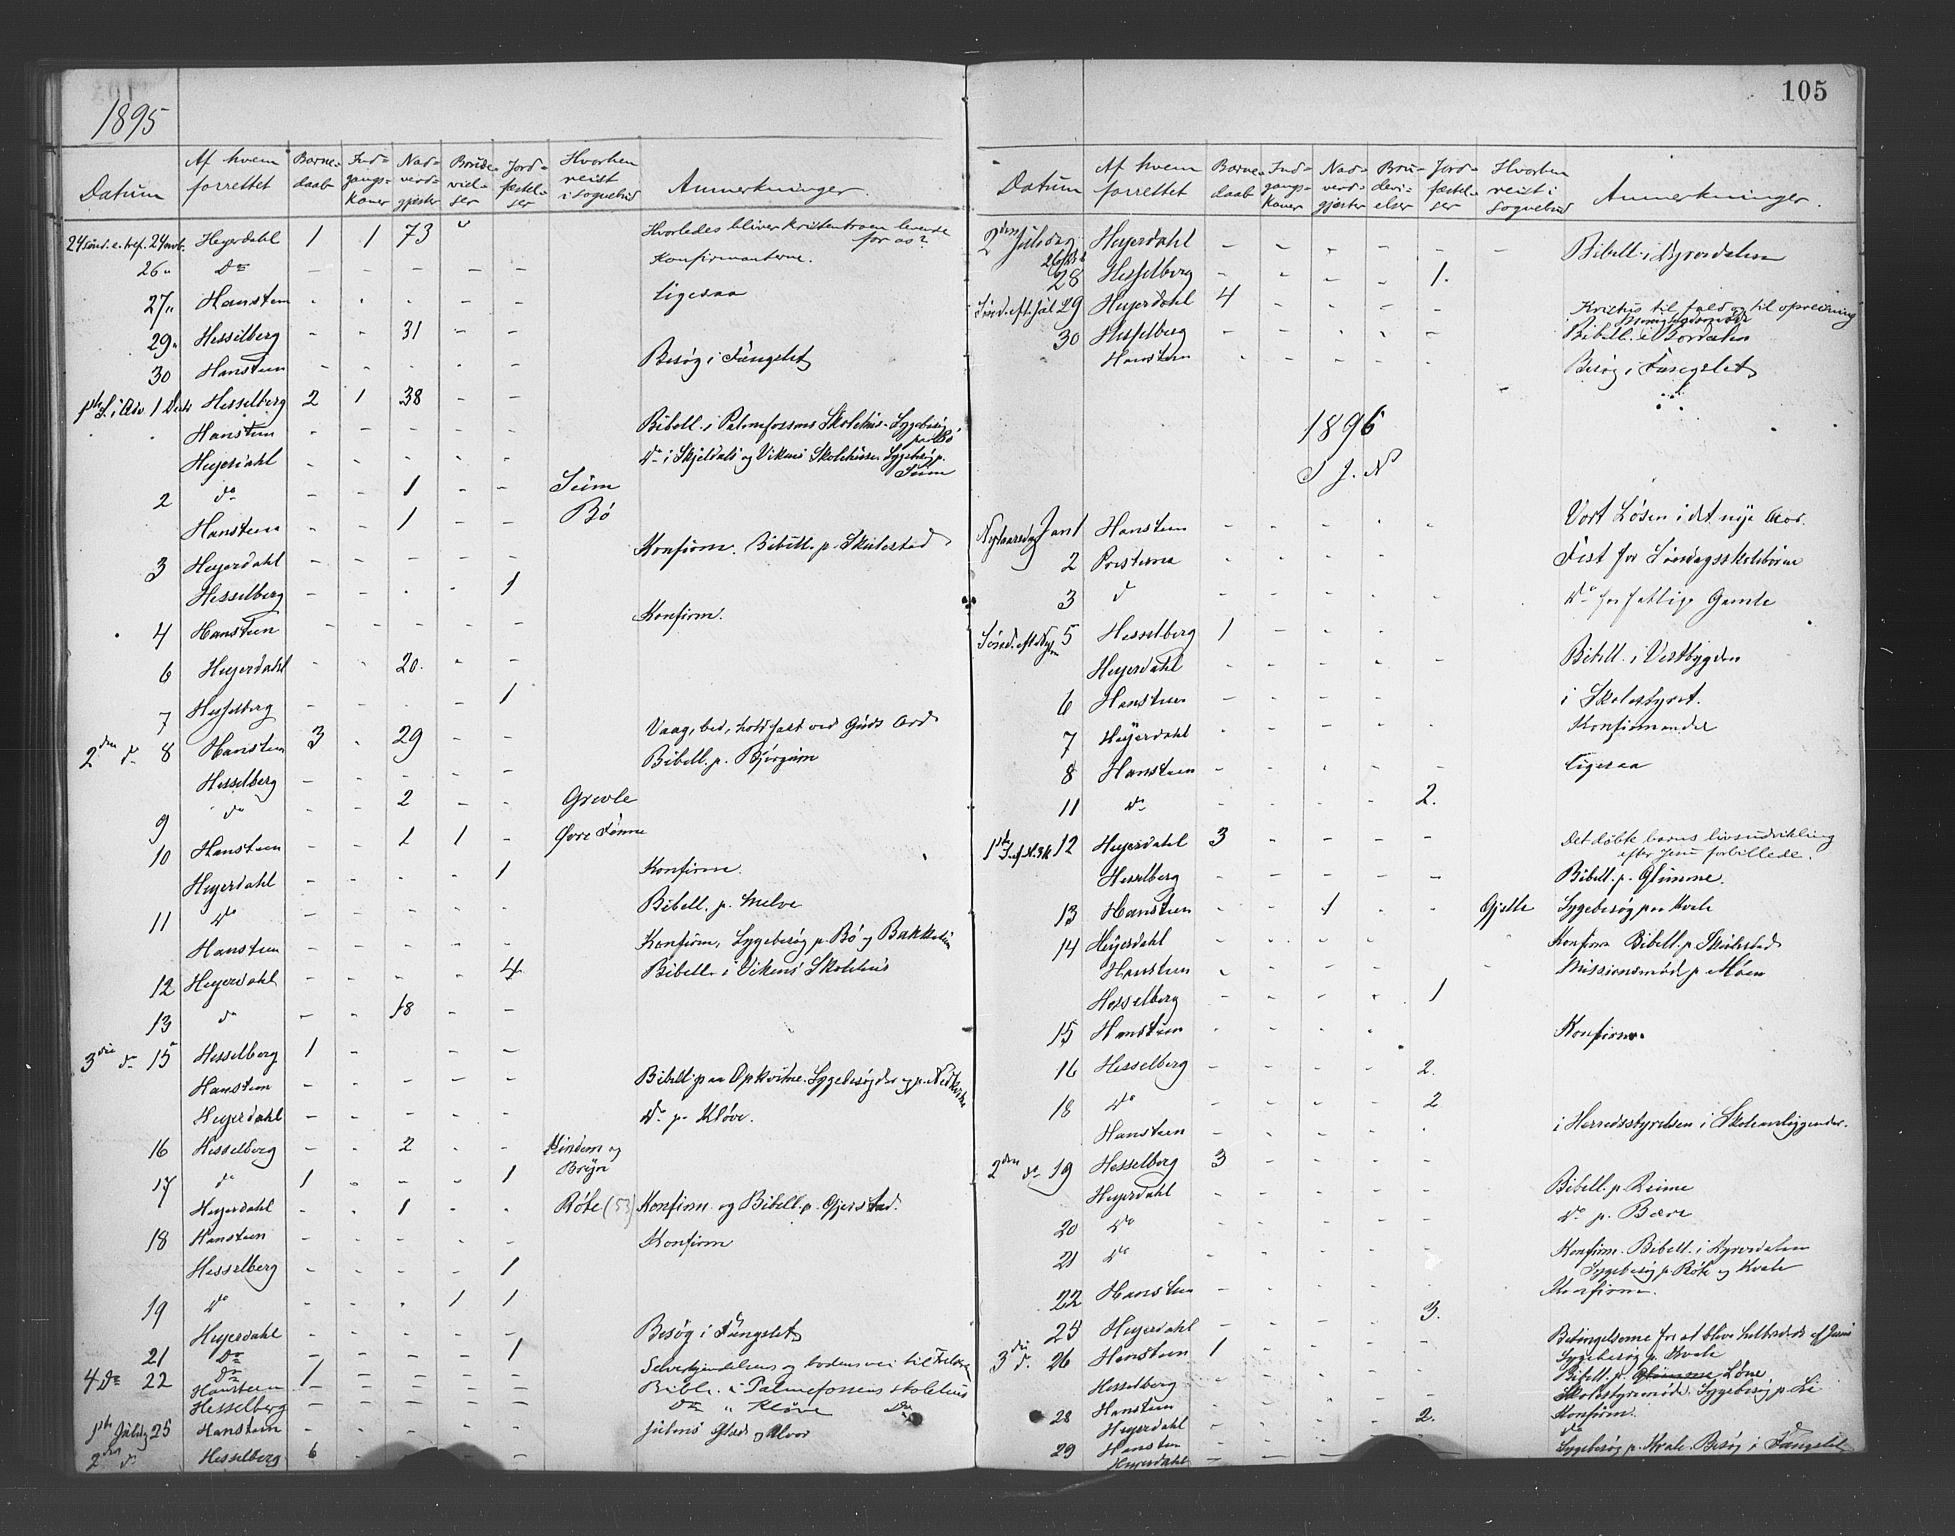 1895
Datum Af hvem forrettet Barne-daab Ind-gangs-koner Nad-verd-gjester Brude-viel-ser Jord-fæstel-ser Hvorhen reist i Sognebud Anmerkninger.
24 Sønd. e. tref. 24 novb. Heyerdahl 1 1 73 " Hvorledes bliver kristentroen levende
for os?
26 " Do - - - - - Konfirmanterne.
27 " Hansteen - - - - - Ligesaa
29 " Hesselberg - - 31 - -
30 Hansteen - - - - - Besøg i Fængslet
1ste S. i Adv. 1 Decbr Hesselberg 2 1 38 - -
Hansteen - - - - - Bibell. i Palmefossens Skolehus. Sygebesøg
paa Bø
Heyerdahl - - - - - Do i Skjeldals og Vikens Skolehuse. Sygebesøg p.
Seim
2 do - - 1 - - Seim
Hansteen - - 1 - - Bø
3 Heyerdahl - - - - - Konfirm. Bibell. p. Skulestad
Hesselberg - - - - 1
4 Hansteen - - - - - Konfirm.
6 Heyerdahl - - 20. - -
7 Hesselberg - - - - 1
2den do 8 Hansteen 3 - 29 - - Vaag, bed, hold fast ved Guds Ord
Hesselberg - - - - - Bibell. p. Bjørgum
9 do - - 2 - - Grevle
10 Hansteen - - 1 1 - Øvre
Heyerdahl - - - - 1 Konfirm.
11 do - - - - - Bibell. p. Melve
Hansteen - - - - - Konfirm, Sygebesøg p. Bø og
12 Heyerdahl - - - - 4 Bibell. i Vikens Skolehus
13 do - - 18 - -
3die do 15 Hesselberg 1 - - -
Hansteen - - - - - Bibell. paa Opkvitne. Sygebesøg der og p. Nedkvitne
Heyerdahl - - - - - Do p. Kløve.
16 Hesselberg - - 2 - - Mindem og
Bryn
17 do 1 - - - 1
Heyerdahl - - 1 - - Røte (53) Konfirm. og Bibell. p. Gjerstad.
18 Hansteen - - - - - Konfirm
Hesselberg - - - - 1
19 do - - - 1 1
Heyerdahl - - - - - Besøg i Fængslet
21 Do - - - - 1
4 Do 22 Do 1 - - - - Selverkjendelsens og bodens vei til Frelse
Hansteen - - - - - Bibl. i Palmefossens skolehus
Hesselberg - - - - - Do " Kløve Do
1ste Juledag 25 Hansteen Julens Glæde og Alvor
2den do Hesselberg 6 - - - -
105
Datum Af hvem forrettet Barne-daab Ind-gangs-koner Nad-verd-gjester Bru-devi-elser Jord-fæstel-ser Hvorhen reist i Sognebud Anmerkninger.
2den Juledag Heyerdahl - - - - - Bibell. i Dyrvedalen
28 Hesselberg - - - - 1.
Sønd. eft. Jul 29 Heyerdahl 4 - - - - Kristus til fald og til opreisning
30 Hesselberg - - - - Bibell. i Bordalen
Hansteen - - - - - Besøg i Fængslet
1896
I J. N
Nytaarsdag Jan 1 Hansteen - - - - - Vort Løsen i det nye Aar.
2 Presterne - - - - - Fest for Søndagsskolebørn
3 do - - - - - Do for fattige Gamle
Sønd. eft. Nyt 5 Hesselberg 1 - - -
Heyerdahl - - - - - Bibell. i Vestbygden
6 Hansteen - - - - - i Skolestyret.
7 Heyerdahl - - - - - Konfirmander
8 Hansteen - - - - - Ligesaa
11 do - - - - 2.
1ste S. ef. H. 3 K 12 Heyerdahl 3 - - - - Det døbte barns livsudvikling
efter Jesu forbillede.
Hesselberg - - - - - Bibell. p. Glimme.
13 Hansteen - - 1 - - Gjelle Sygebesøg paa Kvale
14 Heyerdahl - - - - Konfirm Bibell. p. Skulestad
Hansteen - - - - Missionsmød p. Moen
Hesselberg - - - - 1
15 Hansteen - - - - Konfirm.
16 Hesselberg - - - - 2.
18 do - - - - 2
Hansteen - - - - - i Herredsstyrelsen i Skoleanliggender.
2den do 19 Hesselberg 3 - - - -
Heyerdahl - - - - - Bibell. p. Reime
20 do - - - - - Do p. Bære
21 do - - - - - Konfirm. Bibell. i Dyrvedalen
Sygebesøg p. Røte og Kvale
22 Hansteen - - - - Konfirm.
25 Heyerdahl - - - - 3.
3die do. 26 Hansteen 1 - - - - Betingelserne for at blive helbredede af Jesus
Sygebesøg p. Kvale
Hesselberg - - - - - Bibell. p. Glimme Løne
28 Hansteen - - - - Skolestyremøde. Sygebesøg p. Li
Heyerdahl - - - - 2. Konfirm.
29 Hansteen - - - - - do
Heyerdahl - - - - - Sygebesøg p. Kvale. Besøg i Fængslet